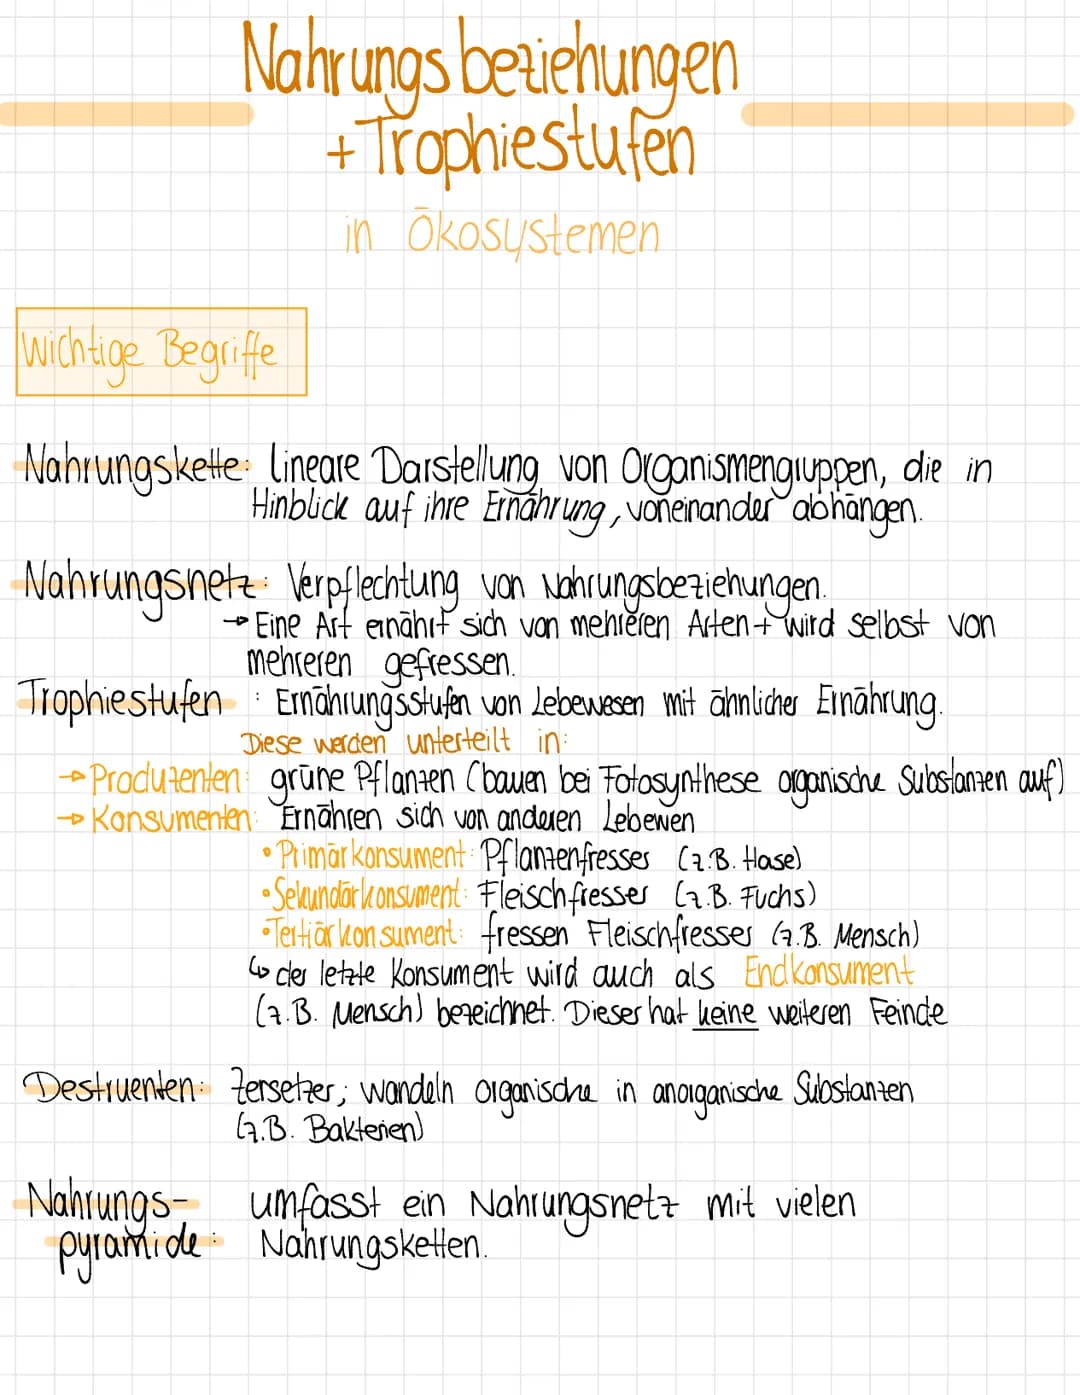 Nahrungsbeziehungen
+ Trophiestufen
in Ökosystemen
Wichtige Begriffe
Nahrungskette: lineare Darstellung von Organismengruppen, die in
Hinblick auf ihre Ernährung, voneinander abhängen.
Nahrungsnetz: Verpflechtung von Nahrungsbeziehungen.
→ Eine Art ernährt sich von mehreren Arten + wird selbst von
mehreren gefressen.
Trophiestufen : Ernährungsstufen von Lebewesen mit ähnlicher Ernährung.
Diese werden unterteilt in:
→ Produzenten: grüne Pflanzen (bauen bei Fotosynthese organische Substanzen auf)
→ Konsumenten: Ernähren sich von anderen Lebewen
• Primärkonsument: Pflanzenfresser (z.B. Hase)
• Sekundärkonsument: Fleischfresser (z.B. Fuchs)
• Tertiärkonsument: fressen Fleischfresser (z.B. Mensch)
↳ der letzte Konsument wird auch als Endkonsument
(z.B. Mensch) bezeichnet. Dieser hat keine weiteren Feinde
Destruenten: Zersetzer; wandeln organische in anorganische Substanzen
(z.B. Bakterien)
Nahrungs- umfasst ein Nahrungsnetz mit vielen
pyramide: Nahrungsketten.